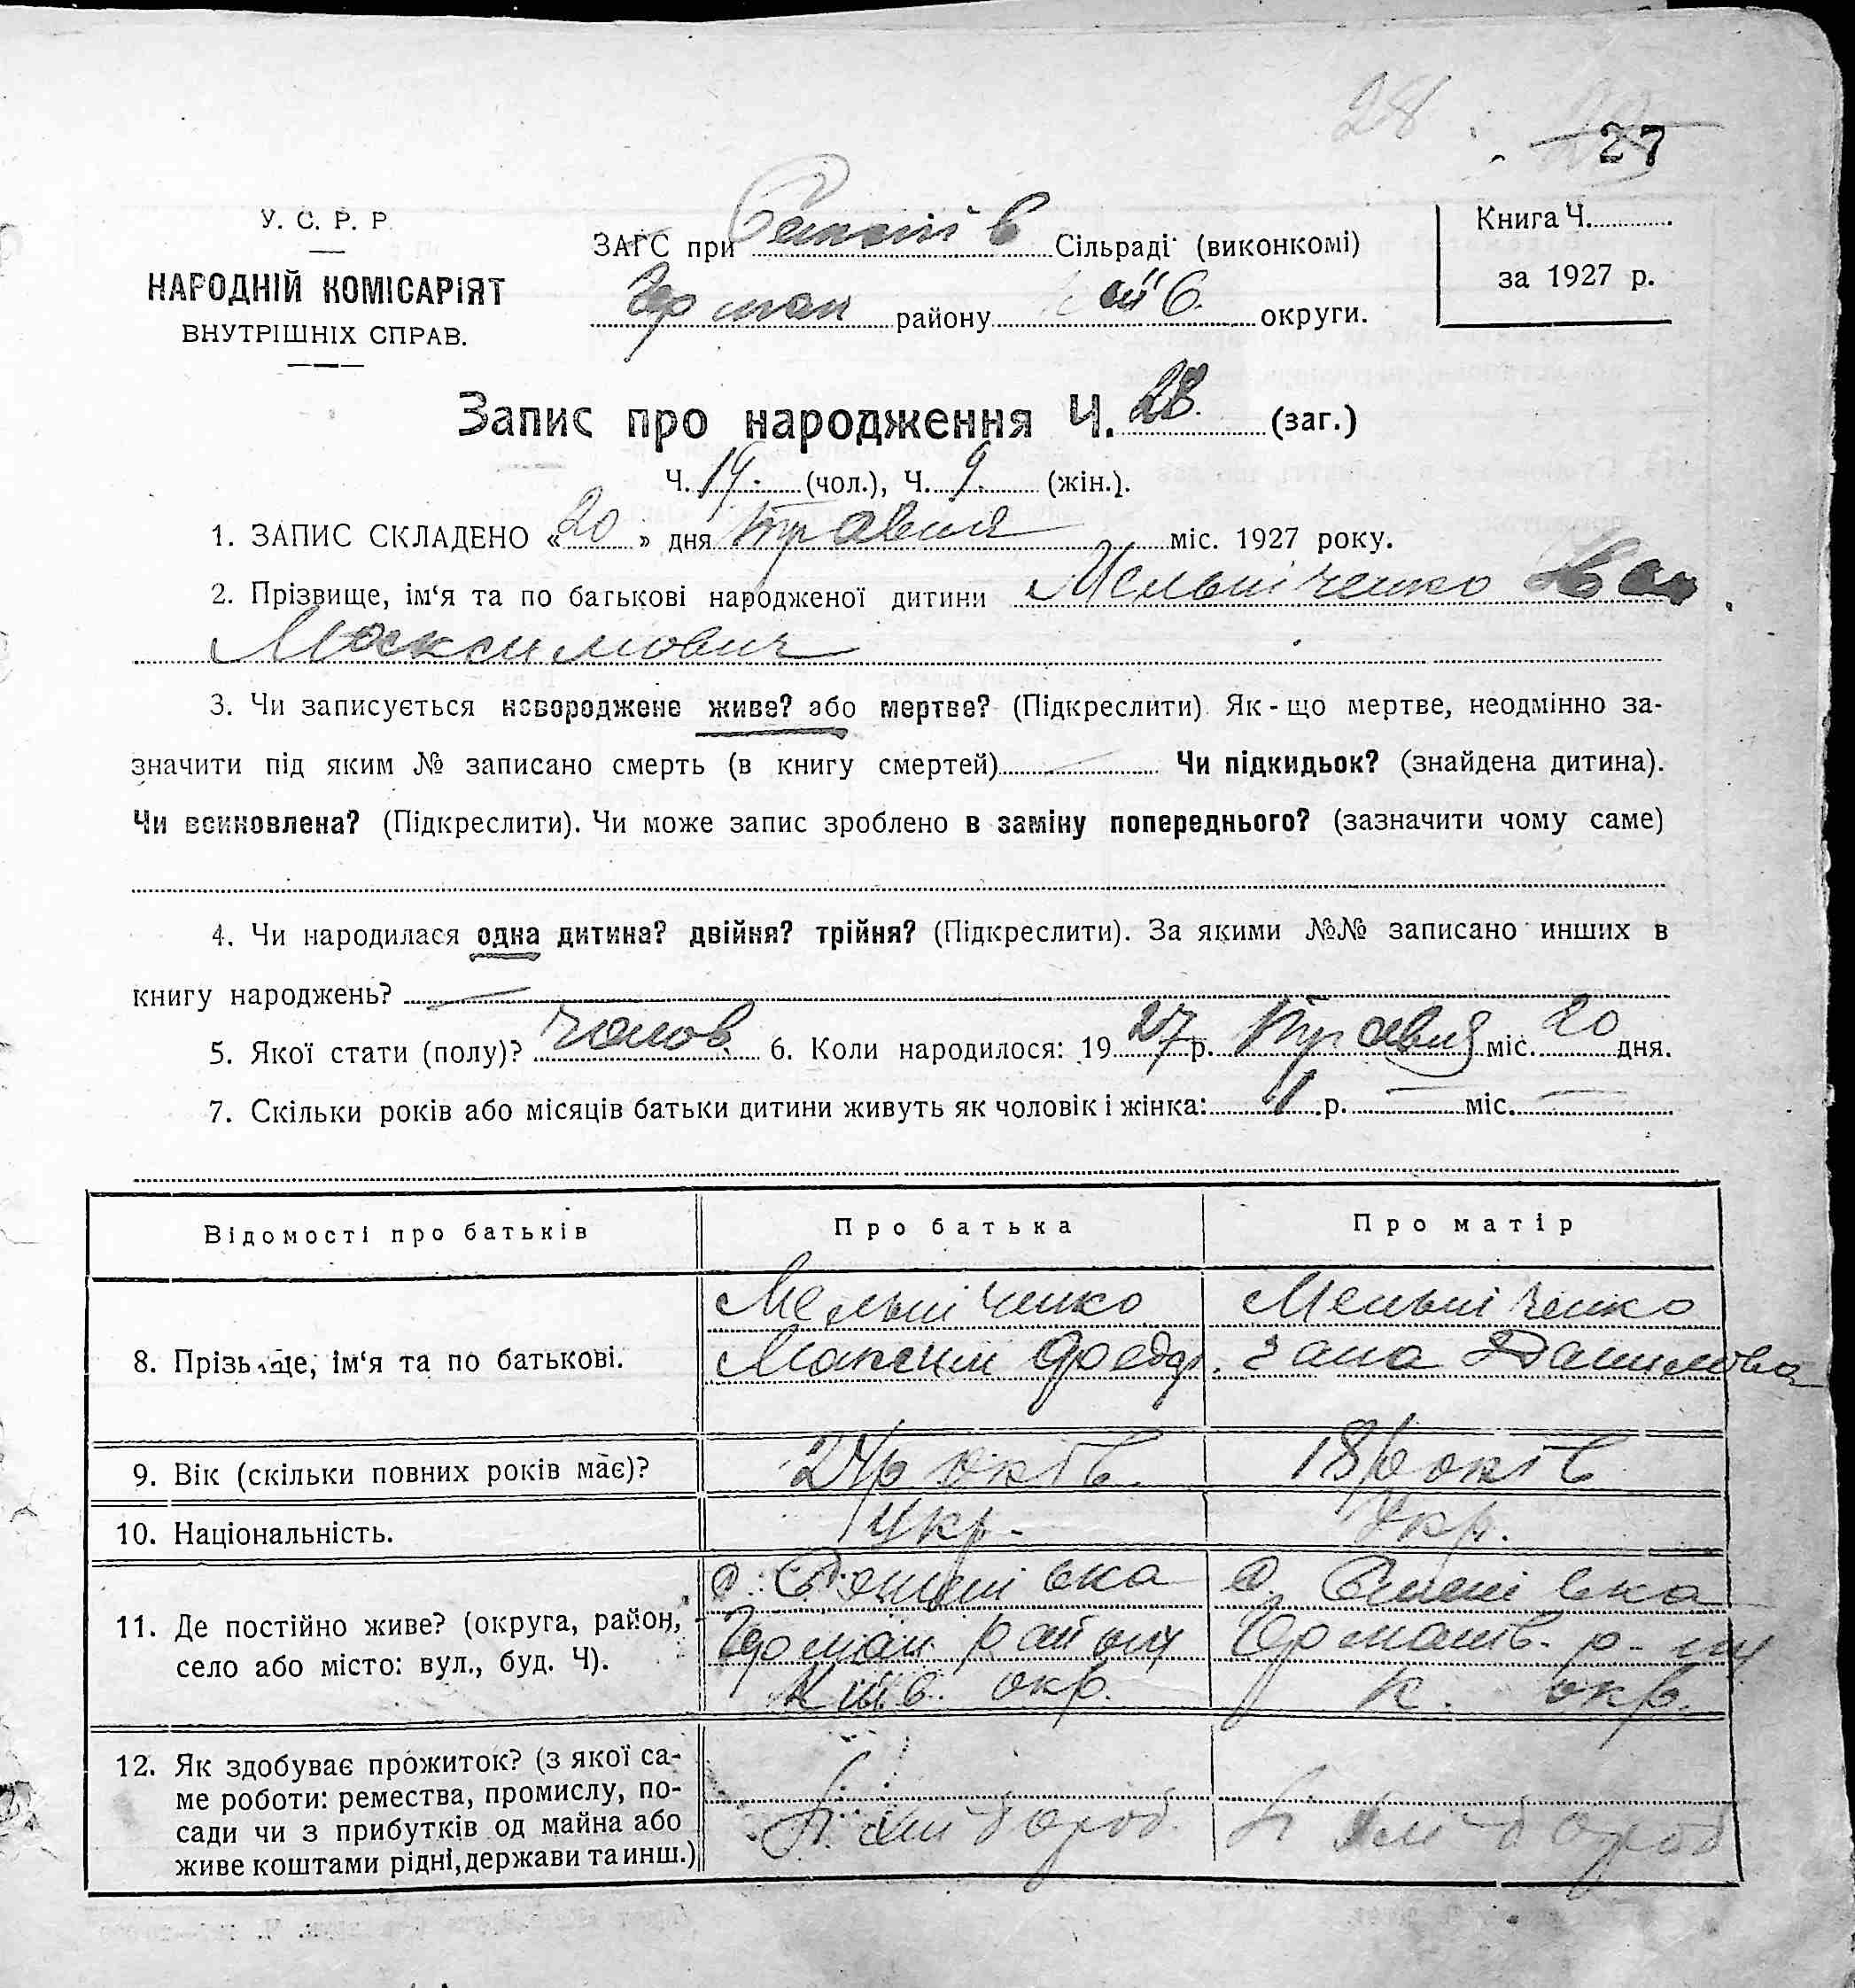 28
27
У. С. Р. Р.
НАРОДНІЙ КОМІСАРІЯТ
ВНУТРІШНІХ СПРАВ.
ЗАГС при Сільраді (виконкомі)
району округи.
Книга Ч.
за 1927 р.
Запис про народження Ч. 28. (заг.)
Ч. 19. (чол.), Ч. 9. (жін.).
1. ЗАПИС СКЛАДЕНО «20» дня травня міс. 1927 року.
2. Прізвище, ім‘я та по батькові народженої дитини Мельніченко Іван
Максимович
3. Чи записується новороджене живе? або мертве? (Підкреслити) Як-що мертве, неодмінно за-
значити під яким № записано смерть (в книгу смертей) Чи підкидьок? (знайдена дитина).
Чи всиновлена? (Підкреслити). Чи може запис зроблено в заміну попереднього? (зазначити чому саме)
4. Чи народилася одна дитина? двійня? трійня? (Підкреслити). За якими №№ записано инших в
книгу народжень? —
5. Якої стати (полу)? чолов. 6. Коли народилося: 1927 р. травня міс. 20 дня.
7. Скільки років або місяців батьки дитини живуть як чоловік і жінка: 1 р. — міс. —
Відомості про батьків Про батька Про матір
8. Прізвище, ім‘я та по батькові.
Мельніченко
Максим Фоедор.
Мельніченко
Данилова
9. Вік (скільки повних років має)? 24 років 18 років
10. Національність. Укр. Укр.
11. Де постійно живе? (округа, район,
село або місто: вул., буд. Ч).
район
Київ. окр.
р-ну
К. окр.
12. Як здобуває прожиток? (з якої са-
ме роботи: ремества, промислу, по-
сади чи з прибутків од майна або
живе коштами рідні, держави та инш.)